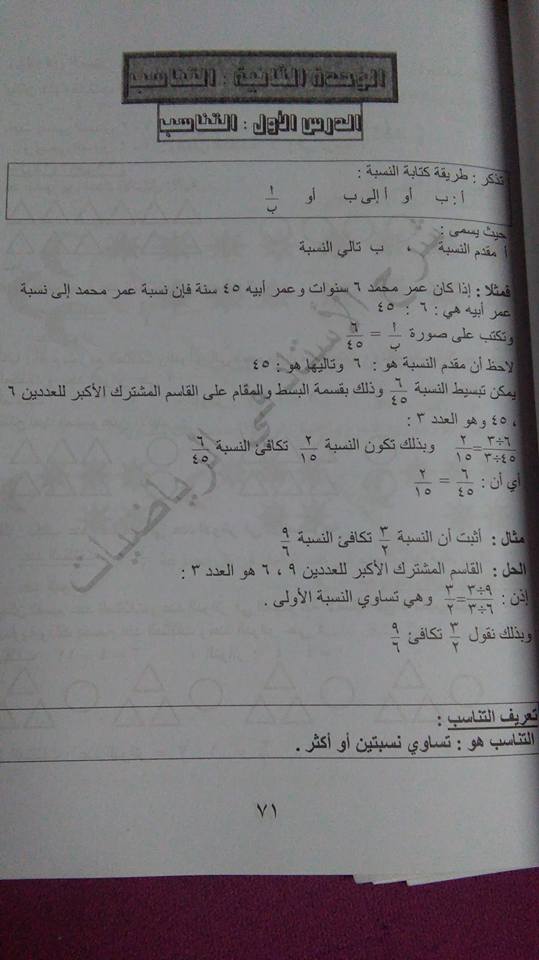 الوحدة الثانية : التناسب
الدرس الأول : التناسب
تذكر : طريقة كتابة النسبة :
أ : ب أو أ إلى ب أو أ/ب
حيث يسمى :
أ مقدم النسبة ، ب تالي النسبة
فمثلا : إذا كان عمر محمد ٦ سنوات وعمر أبيه ٤٥ سنة فإن نسبة عمر محمد إلى نسبة
عمر أبيه هي : ٦ : ٤٥
وتكتب على صورة أ/ب = ٦/٤٥
لاحظ أن مقدم النسبة هو : ٦ وتاليها هو : ٤٥
يمكن تبسيط النسبة ٦/٤٥ وذلك بقسمة البسط والمقام على القاسم المشترك الأكبر للعددين ٦
، ٤٥ وهو العدد ٣ :
٦÷٣/٤٥÷٣ = ٢/١٥ وبذلك تكون النسبة ٢/١٥ تكافئ النسبة ٦/٤٥
أي أن : ٦/٤٥ = ٢/١٥
مثال : أثبت أن النسبة ٣/٢ تكافئ النسبة ٩/٦
الحل : القاسم المشترك الأكبر للعددين ٩ ، ٦ هو العدد ٣ :
إذن : ٩÷٣/٦÷٣ = ٣/٢ وهي تساوي النسبة الأولى .
وبذلك نقول ٣/٢ تكافئ ٩/٦
تعريف التناسب :
التناسب هو : تساوي نسبتين أو أكثر .
٧١